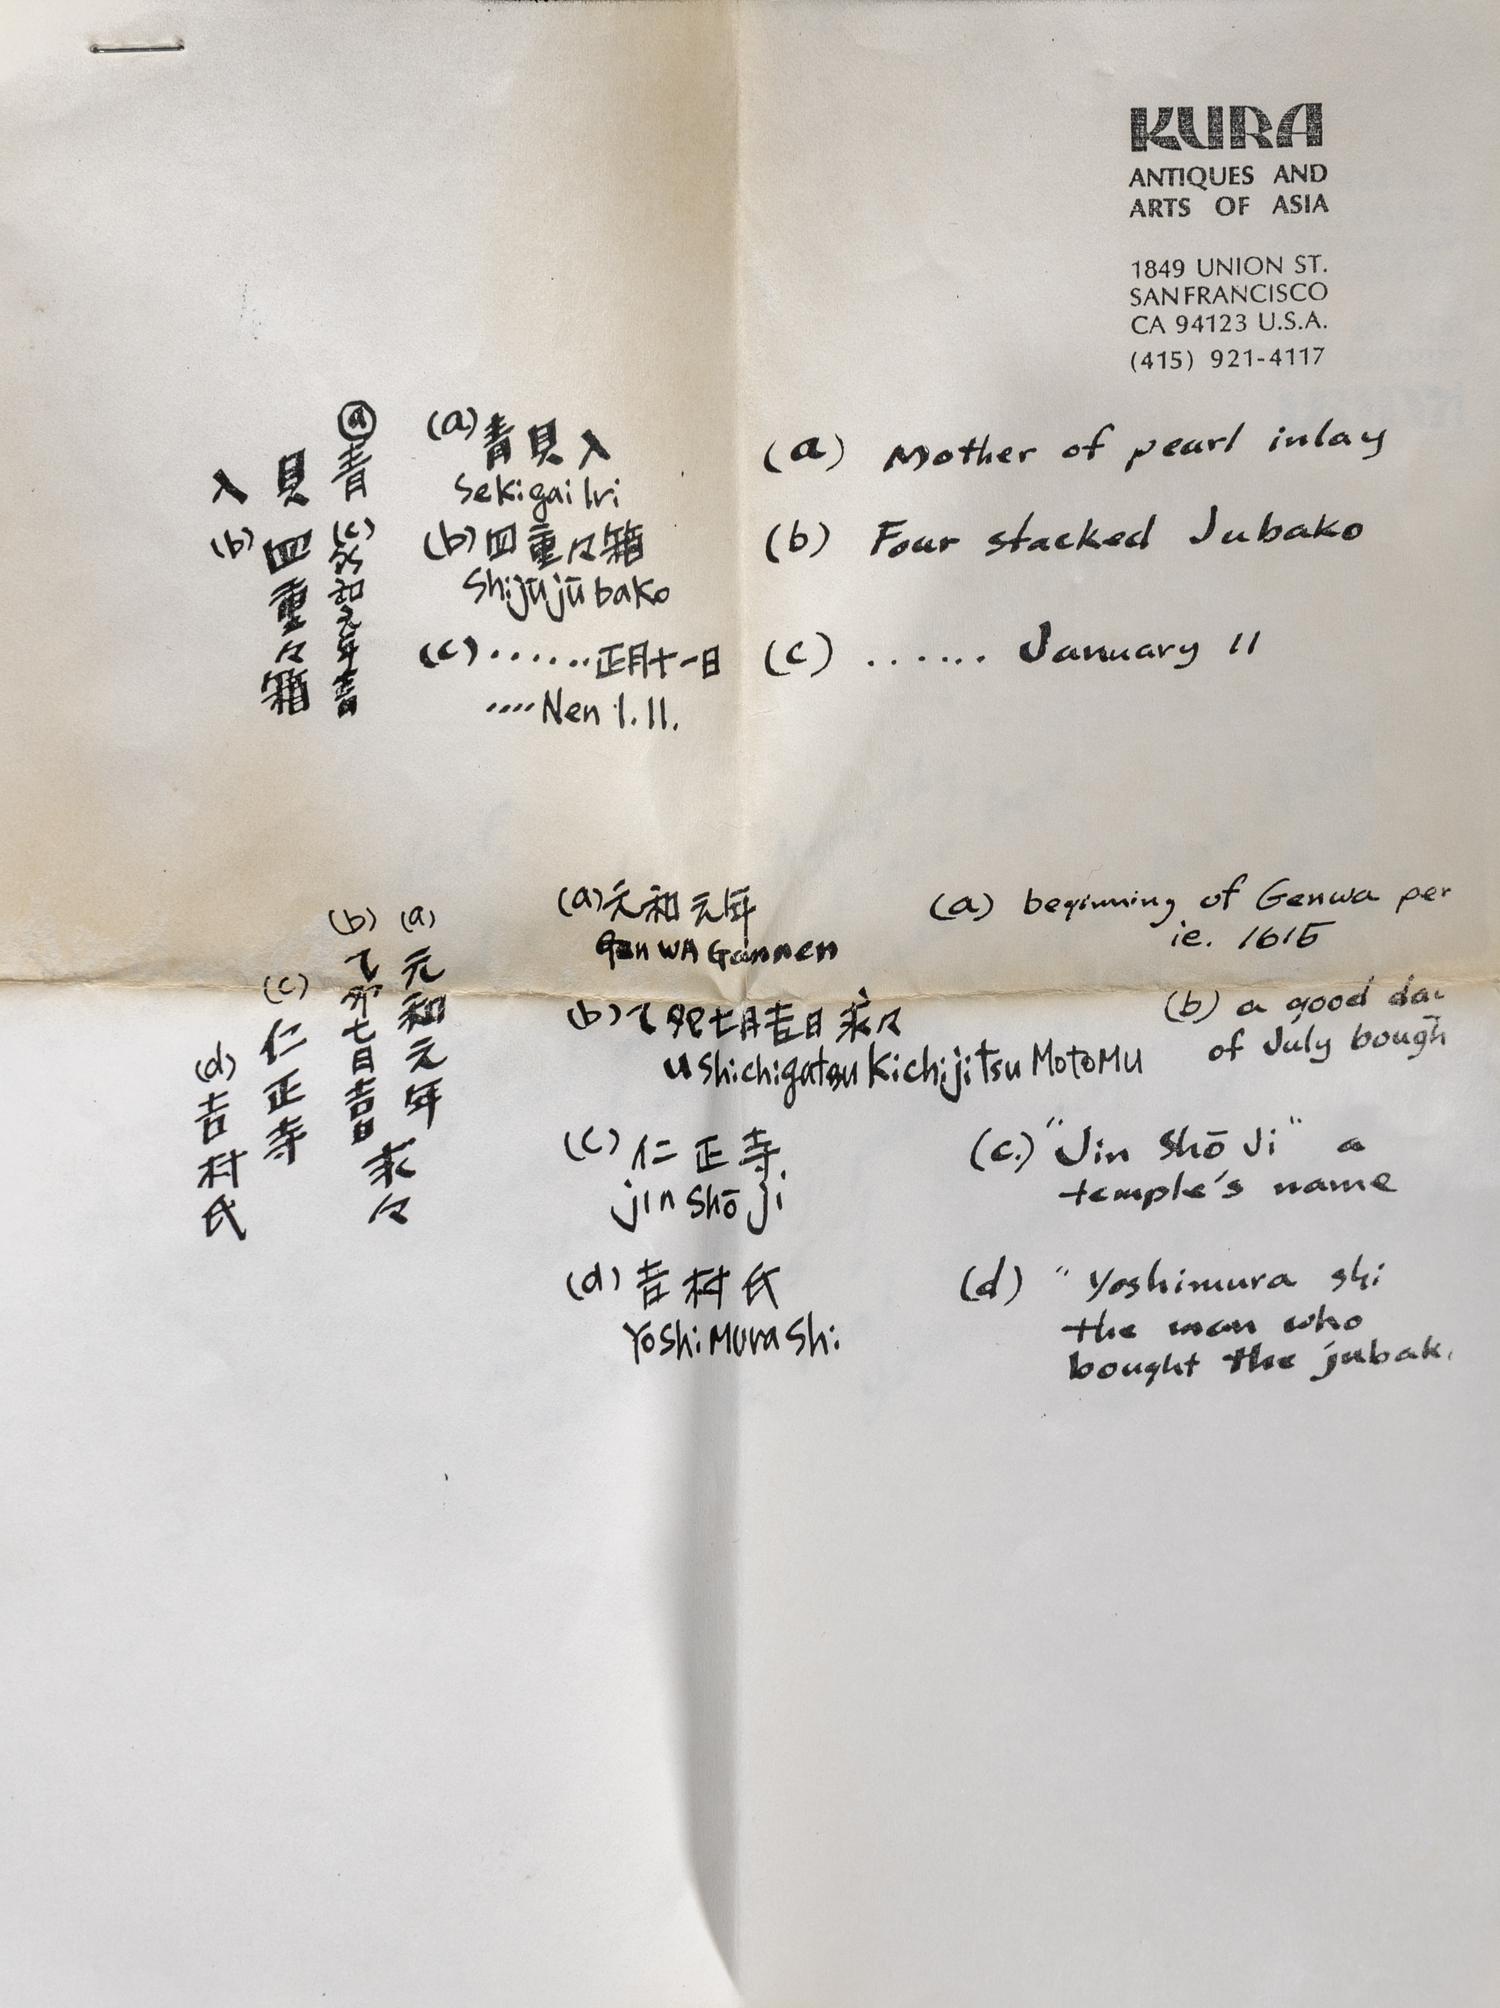 KURA
ANTIQUES AND
ARTS OF ASIA
1849 UNION ST.
SAN FRANCISCO
CA 94123 U.S.A.
(415) 921-4117
(a)
青
貝
入
(b)
四重々箱
(c)
元年
(a) 青貝入
Sekigai Iri
(b) 四重々箱
Shijūjūbako
(c) ...... 正月十一日
.... Nen 1. 11.
(a) Mother of pearl inlay
(b) Four stacked Jubako
(c) ...... January 11
(a)
元和元年
(b)
乙卯七月吉日
求々
(c)
仁正寺
(d)
吉村氏
(a) 元和元年
Gen WA Gannen
(b) 乙卯七月吉日求々
u Shichigatsu Kichijitsu MotoMu
(c) 仁正寺
jin shō ji
(d) 吉村氏
Yoshi Mura Shi
(a) beginning of Genwa per
ie. 1615
(b) a good
of July bough
(c.) "Jin Shō Ji" a
temple's name
(d) " Yoshimura shi
the man who
bought the jubak